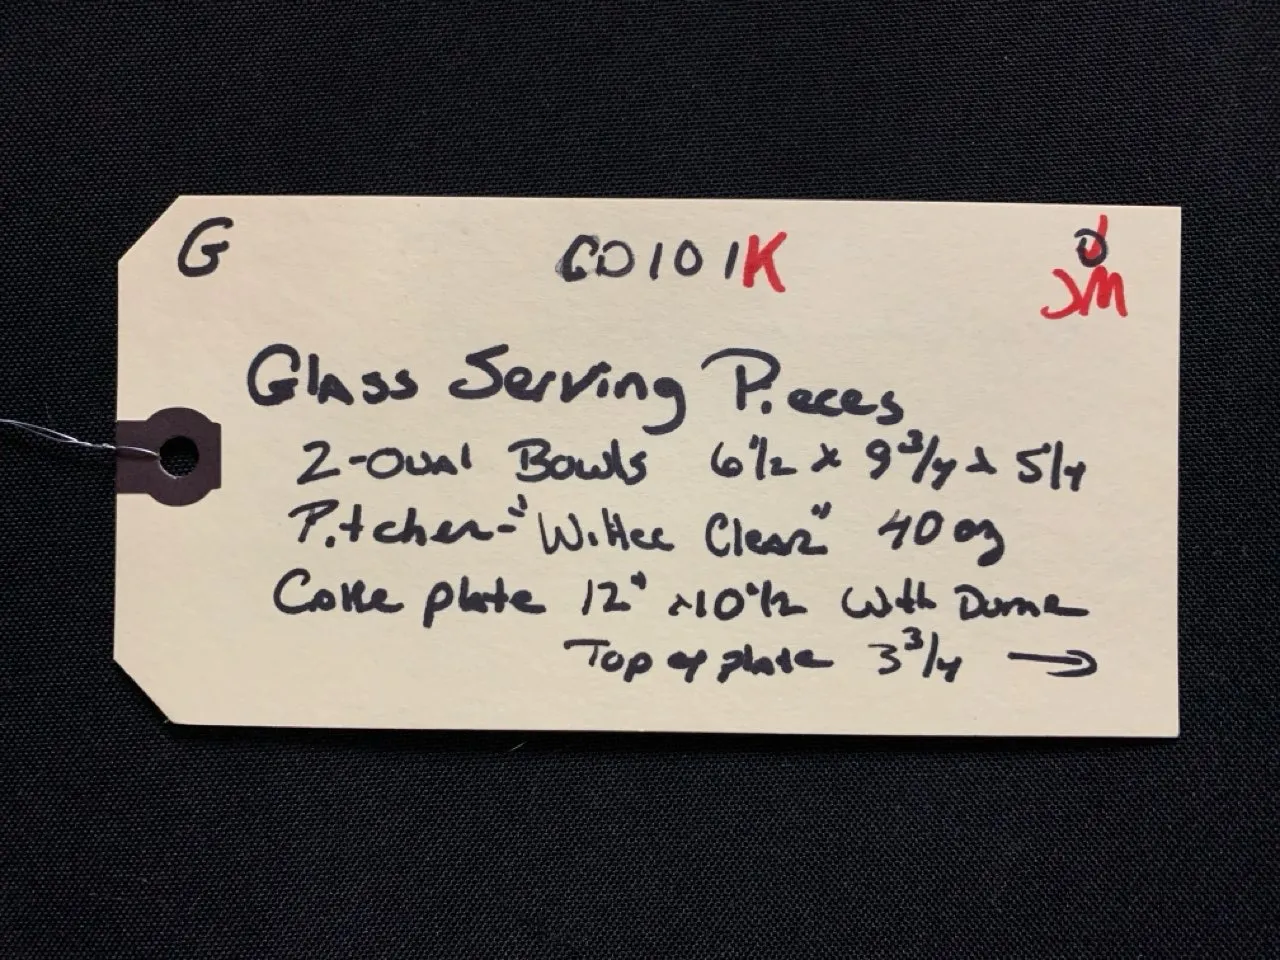 G CD101K D
JM
Glass Serving Pieces
2-Oval Bowls 6 1/2 x 9 3/4 x 5 1/4
Pitcher - "Wittee Clear" 40 oz
Cake plate 12" x 10 1/2 With Dome
Top of plate 3 3/4 →